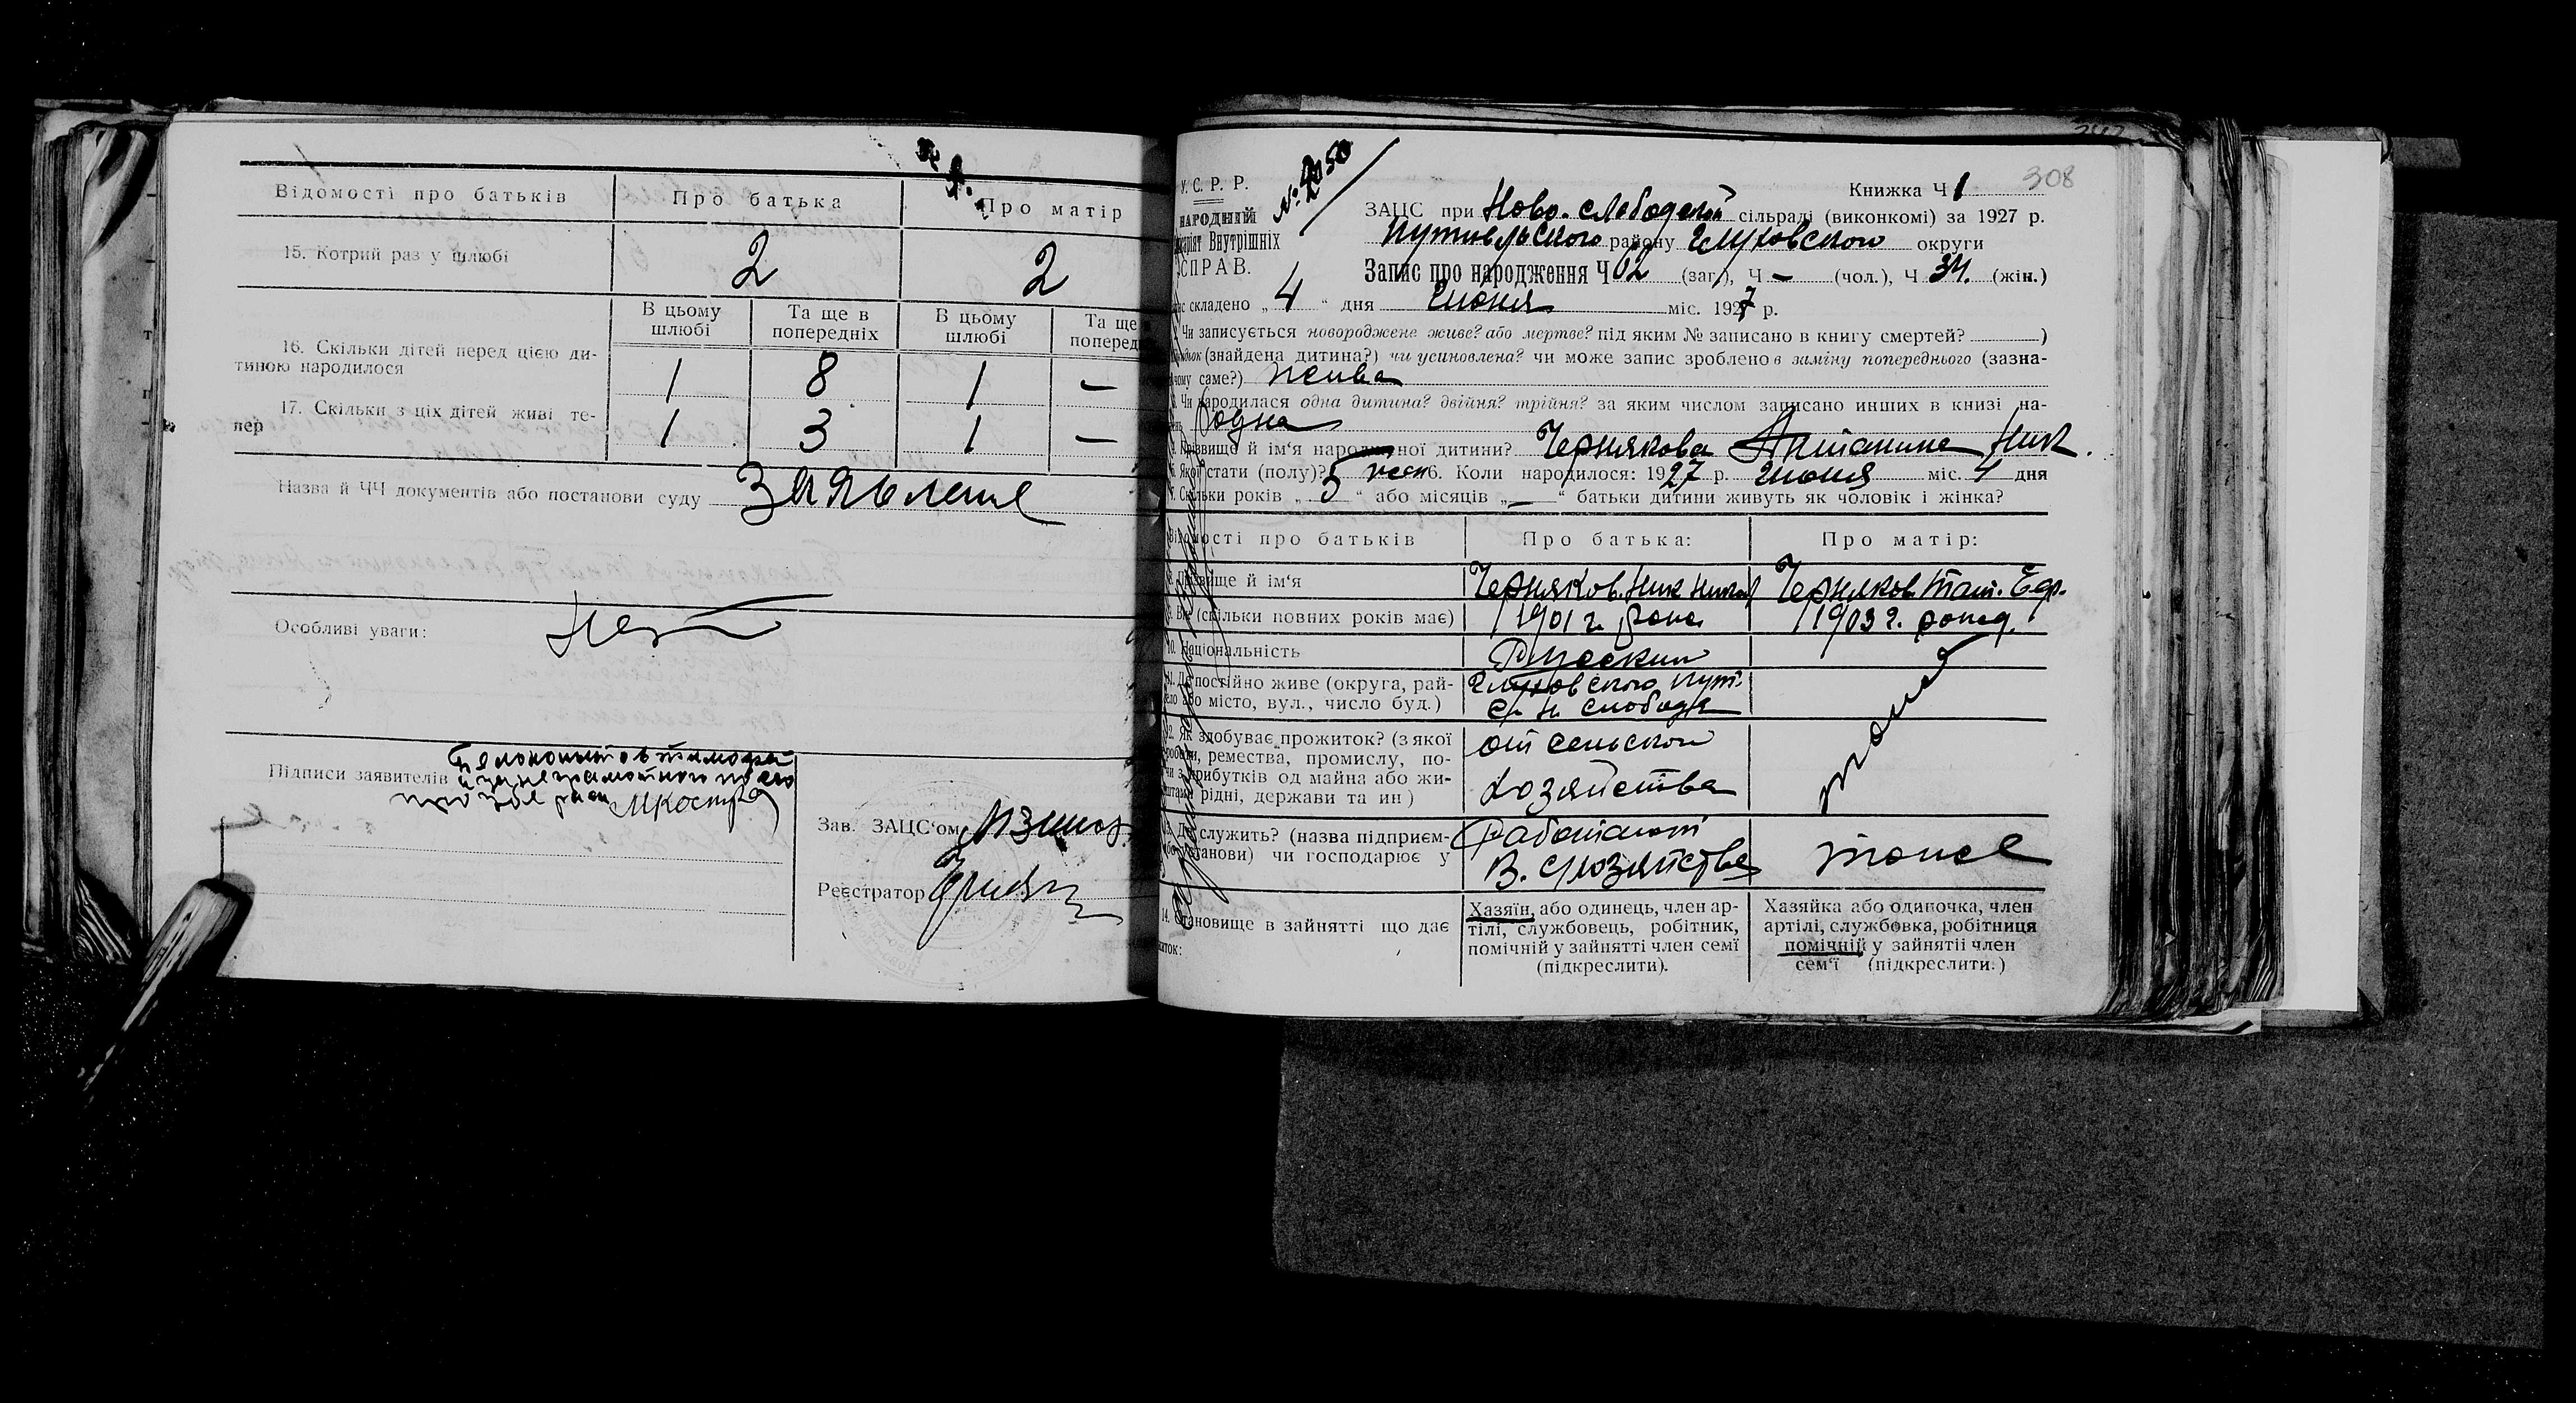 Відомості про батьків Про батька Про матір
15. Котрий раз у шлюбі 2 2
В цьому шлюбі Та ще в попередніх В цьому шлюбі Та ще поперед
16. Скільки дітей перед цією ди-
тиною народилося 1 8 1 —
17. Скільки з ціх дітей живі те-
пер 1 3 1 —
Назва й ЧЧ документів або постанови суду Заявление
Особливі уваги: Нет
Підписи заявителів
Зав. ЗАЦС'ом
Реєстратор
308
У. С. Р. Р. Книжка Ч 1
НАРОДНИЙ ЗАЦС при Ново-слободской сільраді (виконкомі) за 1927 р.
Внутрішніх Путивльского району Глуховского округи
СПРАВ. Запис про народження Ч 62 (заг.), Ч — (чол.), Ч 34. (жін.)
складено „4“ дня Июня міс. 1927 р.
Чи записується новороджене живе? або мертве? під яким № записано в книгу смертей? )
(знайдена дитина?) чи усиновлена? чи може запис зроблено в заміну попереднього (зазна-
чому саме?) жива
Чи народилася одна дитина? двійня? трійня? за яким числом записано инших в книзі на-
одна
Прізвище й ім'я народженої дитини? Чернякова Антанина Ник.
Якої стати (полу)? жен 6. Коли народилося: 1927 р. Июня міс. 1 дня
Скільки років „5“ або місяців „—“ батьки дитини живуть як чоловік і жінка?
Відомості про батьків Про батька: Про матір:
Прізвище й ім'я Черняков Ник Никол Черняков Тат. Еф.
Вік (скільки повних років має) 1901 г. рож. 1903 г. рожд.
10. Національність Русский
11. Де постійно живе (округа, рай-
село або місто, вул., число буд.) Глуховского Пут.
с. Н Слобода
12. Як здобуває прожиток? (з якої
роботи, ремества, промислу, по-
чи з прибутків од майна або жи-
рідні, держави та ин) от сельского
хозяйства
тоже
Де служить? (назва підприєм-
або установи) чи господарює у Работают
В. Хозяйстве тоже
14. Становище в зайнятті що дає
Хазяїн, або одинець, член ар-
тілі, службовець, робітник,
помічній у зайнятті член семї
(підкреслити).
Хазяйка або одиночка, член
артілі, службовка, робітниця
помічній у зайнятіі член
сем'ї (підкреслити.)